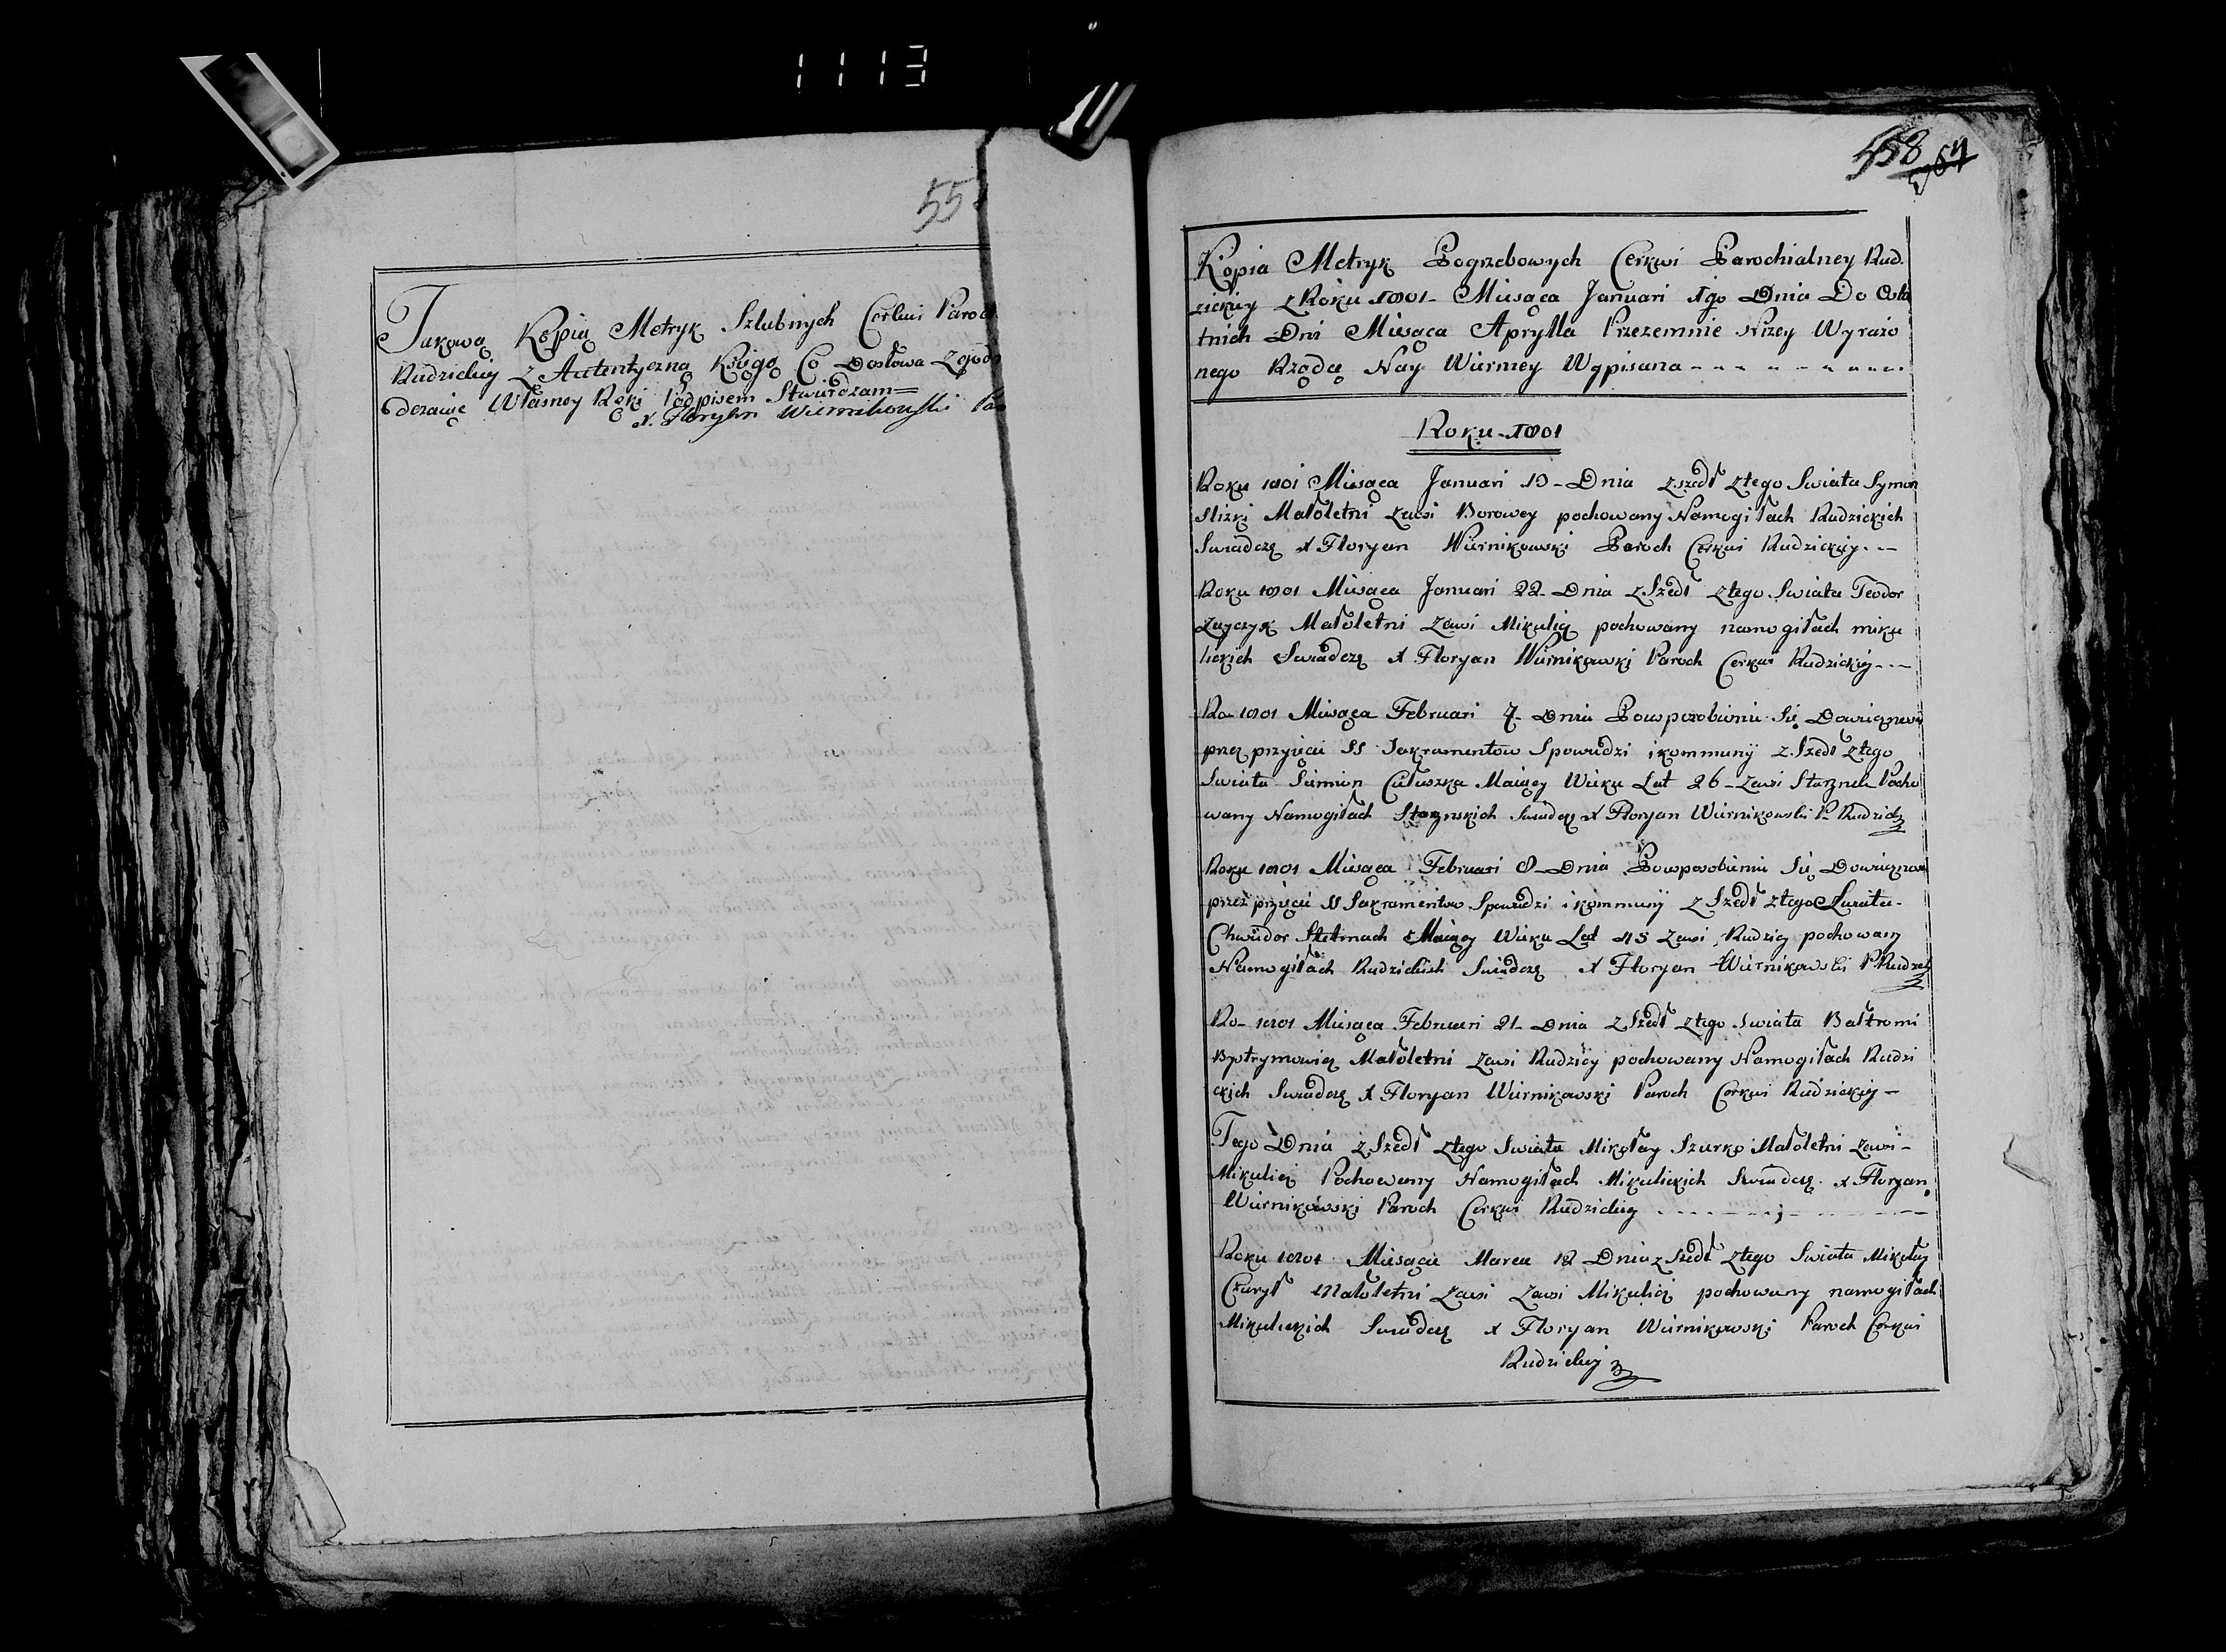 1113
55
Takową Kopią Metryk Szlubnych Cerkwi Paroch
Rudzickiey z Autentyczną Księgą Co Dosłowa Zgod
dczaiąc Własney Ręki Podpisem Stwierdzam=
X. Floryan Wiernikowski Par
558
Kopia Metryk Pogrzebowych Cerkwi Parochialney Rud.
zickiey z Roku 1801- Miesąca Januari 1go Dnia Do Osta
tnich Dni Miesąca Apryla Przezemnie Niżey Wyrażo
nego Rządcę Nay Wierniey Wypisana - - - - - - - - -
Roku-1801
Roku 1801 Miesąca Januari 19-Dnia zszedł ztego Swiata Symon
Slizki Małoletni zewsi Borowey pochowany Namogiłach Rudzickich
Swiadczę X Floryan Wiernikowski Paroch Cerkwi Rudzickiey - - -
Roku 1801 Miesąca Januari 22- Dnia z Szedł ztego Swiata Teodor
Zayczyk Małoletni zewsi Mikulicz pochowany namogiłach miku
lickich Swiadczę X Floryan Wiernikowski Paroch Cerkwi Rudzickiey - - -
Ro- 1801 Miesąca Februari 7- Dnia Pousposobieniu Się Dowieczności
przez przyięcie SS Sakramentow Spowiedzi i kommunij z Szedł ztego
Swiata Siemion Maiący Wieku Lat 26- zewsi Pocho
wany Namogiłach Swiadczę X Floryan Wiernikowski P. Rudzick
Roku 1801 Miesąca Februari 8- Dnia Pousposobieniu Się Dowieczności
przez przyięcie SS Sakramentow Spowiedzi i kommunij z Szedł ztego Swiata-
Chwiedor Stelmach Maiący Wieku Lat 45 zewsi Rudzicy pochowany
Namogiłach Rudzickich Swiadczę X Floryan Wiernikowski P Rudzick
Ro- 1801 Miesąca Februari 21- Dnia z Szedł ztego Swiata Bałtromi
Bystrymowicz Małoletni zewsi Rudzicy pochowany Namogiłach Rudzi
ckich Swiadczę X Floryan Wiernikowski Paroch Cerkwi Rudzickiey -
Tego Dnia z Szedł ztego Swiata Mikołay Szurko Małoletni zewsi-
Mikulicz Pochowany Namogiłach Mikulickich Swiadczę X Floryan
Wiernikowski Paroch Cerkwi Rudzickiey - - - - - - - - - -
Roku 1801 Miesąca Marca 12 Dnia z Szedł ztego Swiata Mikołay
Małoletni zewsi zewsi Mikulicz pochowany namogiłach
Mikulickich Swiadczę X Floryan Wiernikowski Paroch Cerkwi
Rudzickiey